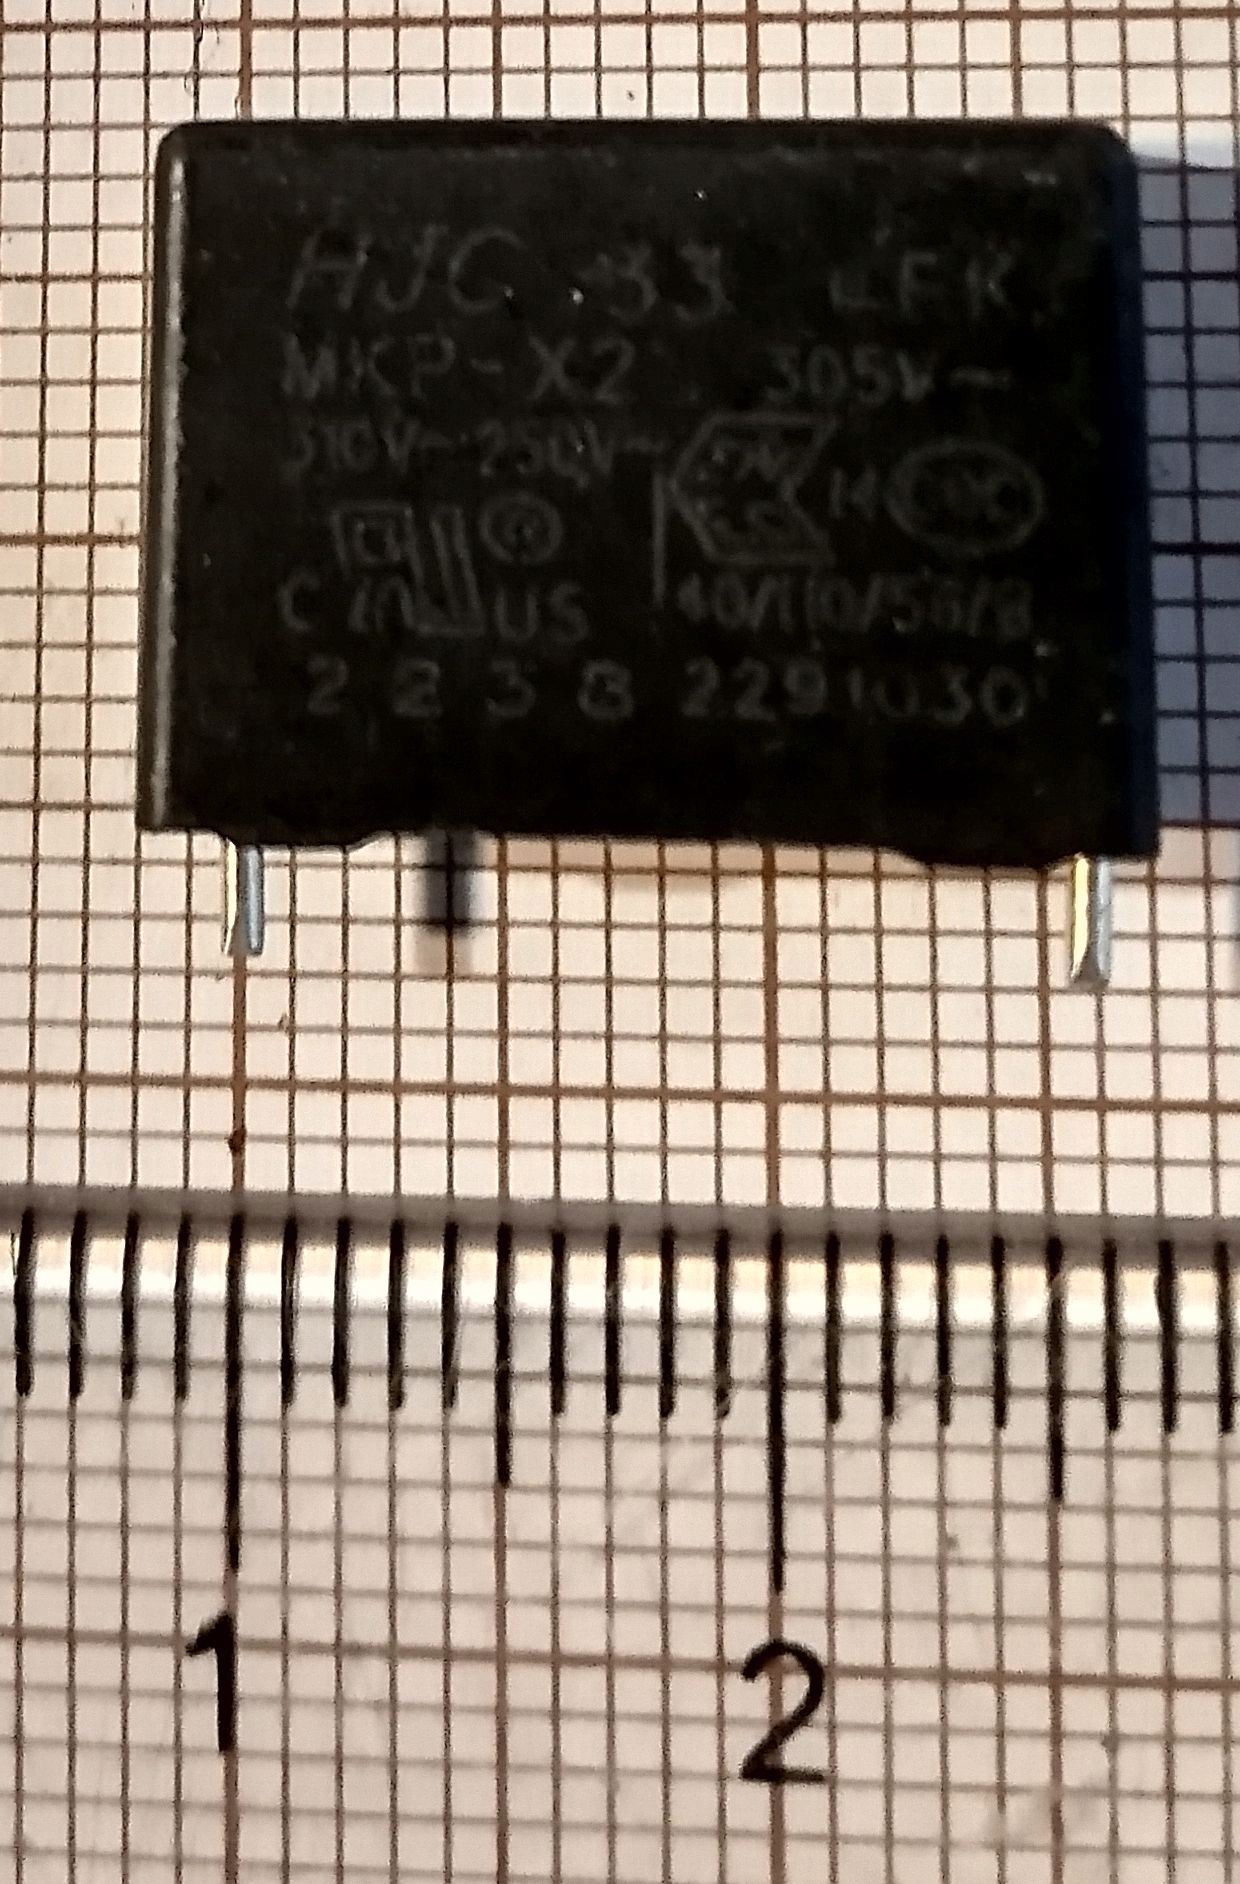 HJC .33 LFK
MKP-X2 305V~
310V~ 250V~ 14 CQC
C US 40/110/56/B
2238 2291030
1 2